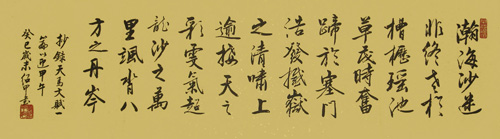 瀚海沙迷
非終老於
槽櫪瑤池
草茂時奮
蹄於塞門
浩發撼嶽
之清嘯上
逾接天之
彩雯氣超
龍沙之萬
里颯沓八
方之丹岑
抄錄天馬文賦一
篇以迎甲午
癸巳歲末